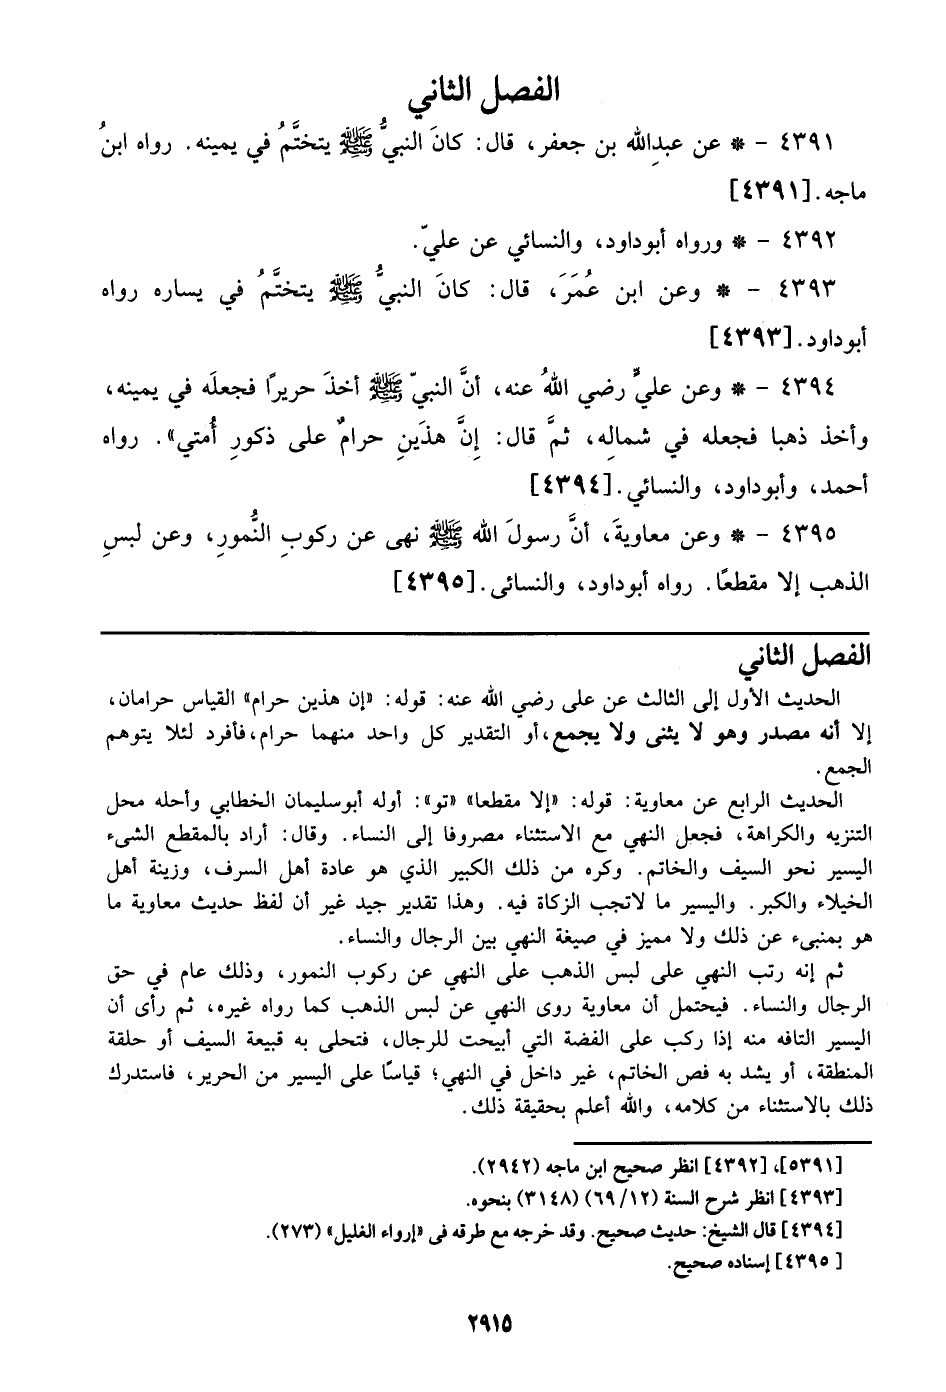 الفصل الثاني
٤٣٩١ – * عن عبدِالله بن جعفر، قال: كانَ النبيُّ ﷺ يتختَّمُ في يمينه. رواه ابنُ
ماجه. [٤٣٩١]
٤٣٩٢ – * ورواه أبوداود، والنسائي عن عليّ.
٤٣٩٣ – * وعن ابن عُمَرَ، قال: كانَ النبيُّ ﷺ يتختَّمُ في يساره رواه
أبوداود. [٤٣٩٣]
٤٣٩٤ – * وعن عليٍّ رضي اللهُ عنه، أنَّ النبيّ ﷺ أخذَ حريرًا فجعلَه في يمينه،
وأخذ ذهبا فجعله في شمالِه، ثمَّ قال: إِنَّ هذَينِ حرامٌ على ذكورِ أُمتي». رواه
أحمد، وأبوداود، والنسائي. [٤٣٩٤]
٤٣٩٥ – * وعن معاويةَ، أنَّ رسولَ الله ﷺ نهى عن ركوبِ النُّمورِ، وعن لبسِ
الذهب إلا مقطعًا. رواه أبوداود، والنسائى. [٤٣٩٥]
الفصل الثاني
الحديث الأول إلى الثالث عن على رضي الله عنه: قوله: «إن هذين حرام» القياس حرامان،
إلا أنه مصدر وهو لا يثنى ولا يجمع، أو التقدير كل واحد منهما حرام، فأفرد لئلا يتوهم
الجمع.
الحديث الرابع عن معاوية: قوله: «إلا مقطعا» «تو»: أوله أبوسليمان الخطابي وأحله محل
التنزيه والكراهة، فجعل النهي مع الاستثناء مصروفا إلى النساء. وقال: أراد بالمقطع الشىء
اليسير نحو السيف والخاتم. وكره من ذلك الكبير الذي هو عادة أهل السرف، وزينة أهل
الخيلاء والكبر. واليسير ما لاتجب الزكاة فيه. وهذا تقدير جيد غير أن لفظ حديث معاوية ما
هو بمنبىء عن ذلك ولا مميز في صيغة النهي بين الرجال والنساء.
ثم إنه رتب النهي على لبس الذهب على النهي عن ركوب النمور، وذلك عام في حق
الرجال والنساء. فيحتمل أن معاوية روى النهي عن لبس الذهب كما رواه غيره، ثم رأى أن
اليسير التافه منه إذا ركب على الفضة التي أبيحت للرجال، فتحلى به قبيعة السيف أو حلقة
المنطقة، أو يشد به فص الخاتم، غير داخل في النهي؛ قياسًا على اليسير من الحرير، فاستدرك
ذلك بالاستثناء من كلامه، والله أعلم بحقيقة ذلك.
[٥٣٩١]، [٤٣٩٢] انظر صحيح ابن ماجه (٢٩٤٢).
[٤٣٩٣] انظر شرح السنة (٦٩/١٢) (٣١٤٨) بنحوه.
[٤٣٩٤] قال الشيخ: حديث صحيح. وقد خرجه مع طرقه فى «إرواء الغليل» (٢٧٣).
[ ٤٣٩٥] إسناده صحيح.
٢٩١٥